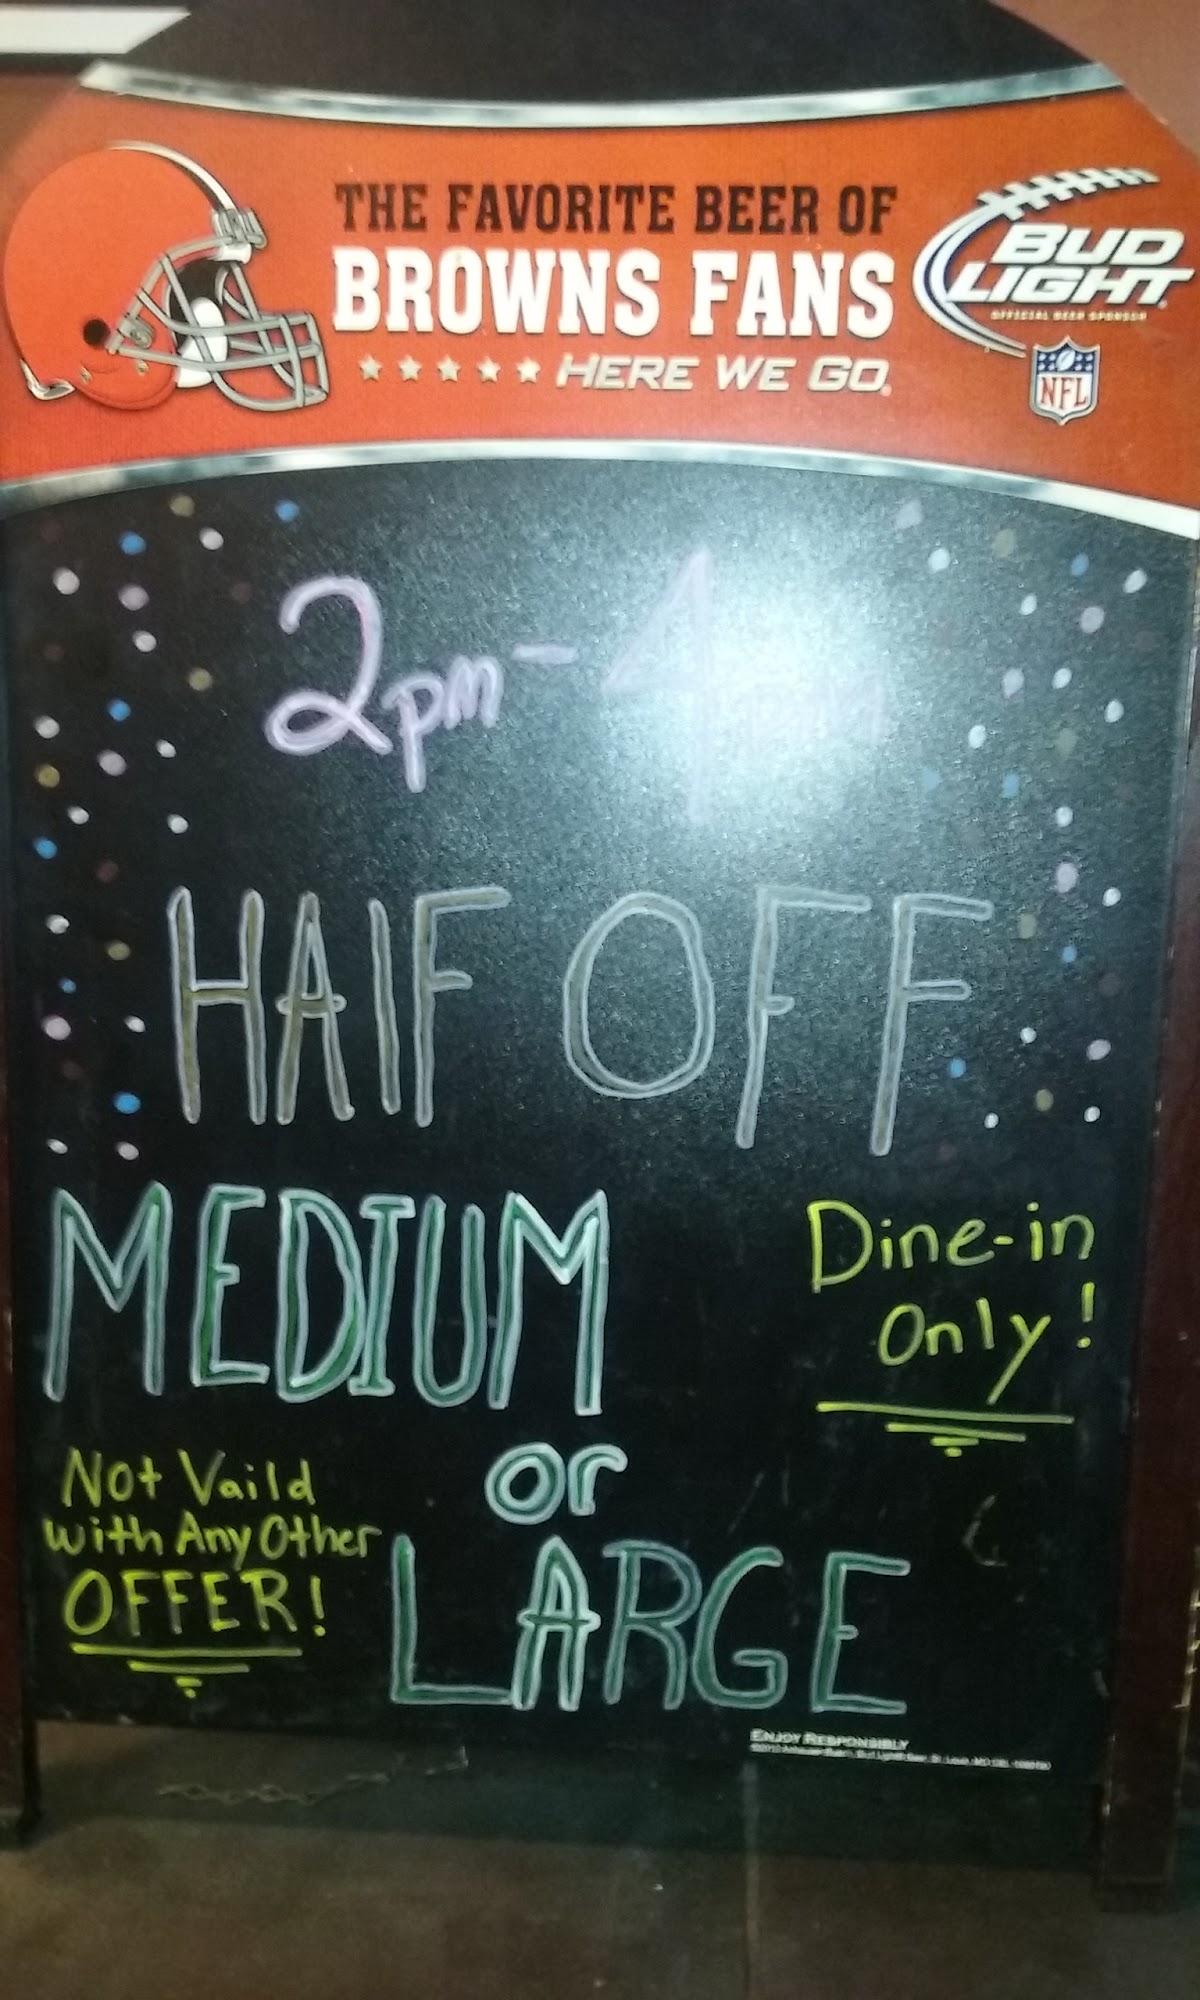 THE FAVORITE BEER OF
BROWNS FANS
HERE WE GO.
BUD
LIGHT
OFFICIAL BEER SPONSOR
NFL
2pm-4pm
HAlF OFF
MEDIUM
or
LARGE
Dine-in
Only!
Not Vaild
with Any Other
OFFER!
ENJOY RESPONSIBLY